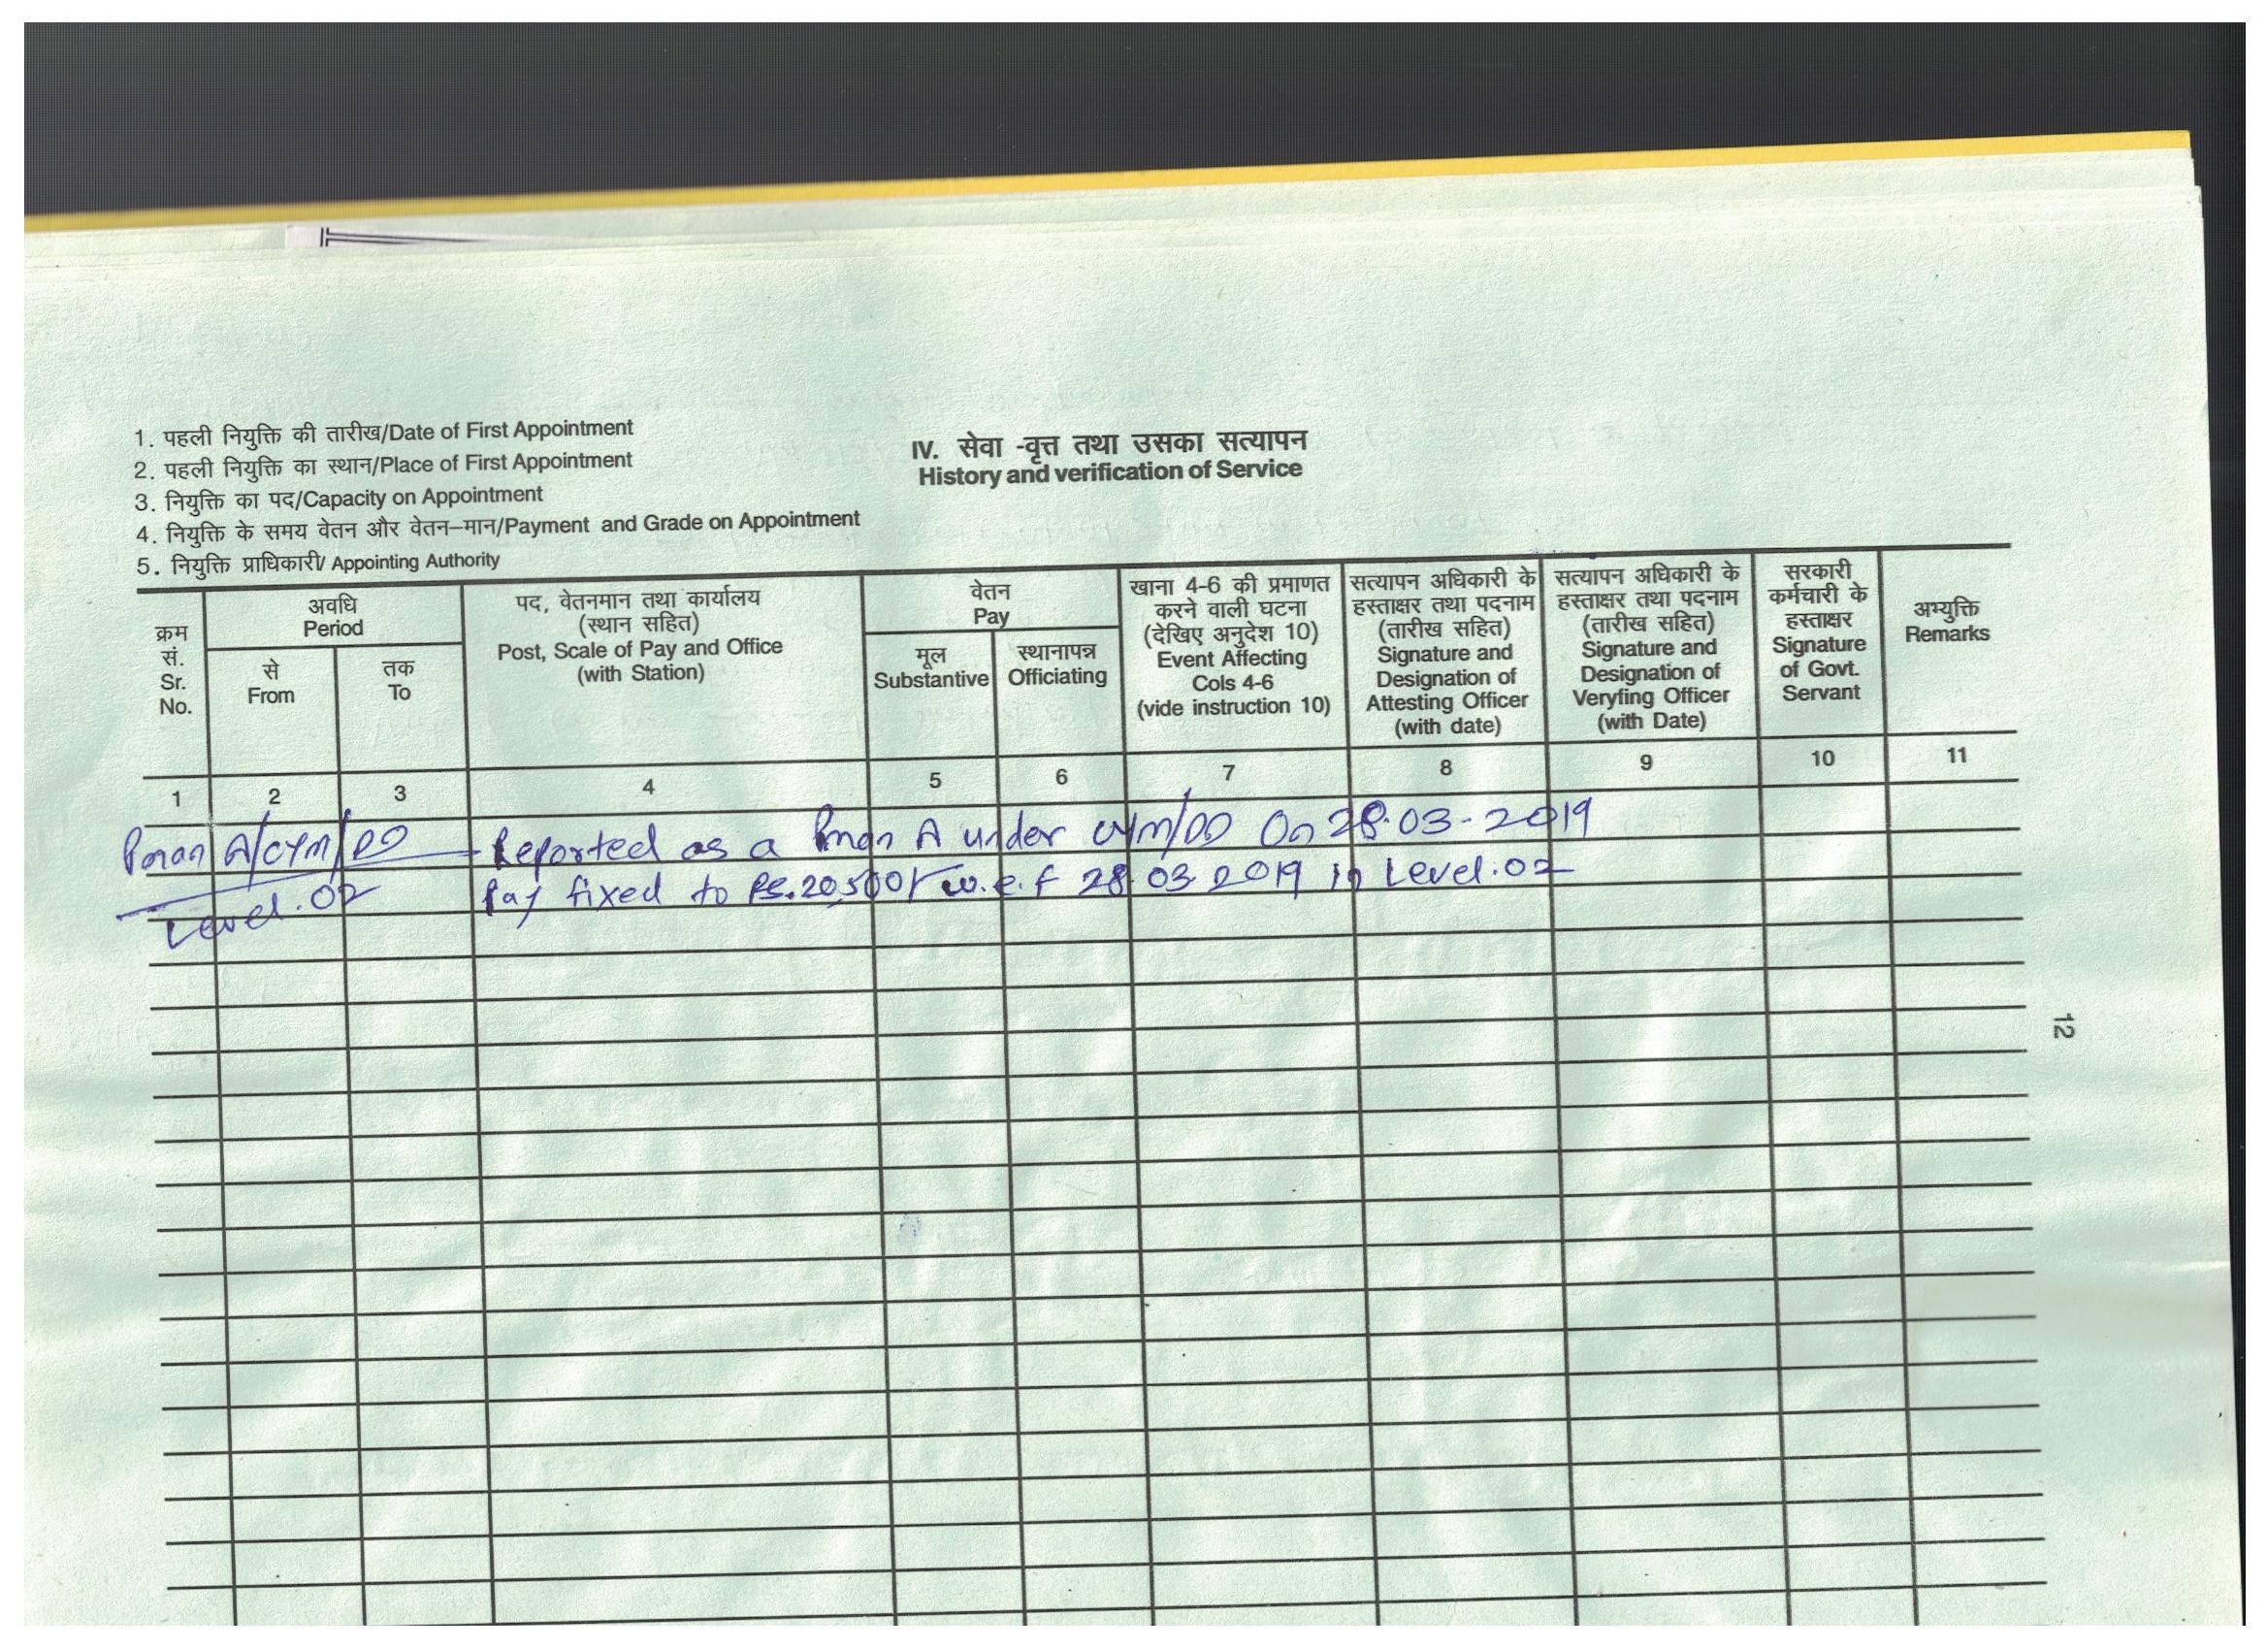 1. पहली नियुक्ति की तारीख/Date of First Appointment
2. पहली नियुक्ति का स्थान/Place of First Appointment
3. नियुक्ति का पद/Capacity on Appointment
4. नियुक्ति के समय वेतन और वेतन–मान/Payment and Grade on Appointment
5. नियुक्ति प्राधिकारी/ Appointing Authority
IV. सेवा -वृत्त तथा उसका सत्यापन
History and verification of Service
क्रम
सं.
Sr.
No.
अवधि
Period
से
From
तक
To
पद, वेतनमान तथा कार्यालय
(स्थान सहित)
Post, Scale of Pay and Office
(with Station)
वेतन
Pay
मूल
Substantive
स्थानापन्न
Officiating
खाना 4-6 की प्रमाणत
करने वाली घटना
(देखिए अनुदेश 10)
Event Affecting
Cols 4-6
(vide instruction 10)
सत्यापन अधिकारी के
हस्ताक्षर तथा पदनाम
(तारीख सहित)
Signature and
Designation of
Attesting Officer
(with date)
सत्यापन अधिकारी के
हस्ताक्षर तथा पदनाम
(तारीख सहित)
Signature and
Designation of
Veryfing Officer
(with Date)
सरकारी
कर्मचारी के
हस्ताक्षर
Signature
of Govt.
Servant
अभ्युक्ति
Remarks
1 2 3 4 5 6 7 8 9 10 11
Pman A/CYM/DD Reported as a Pman A under CYM/DD On 28.03-2019
Level.02 Pay fixed to Rs.20,500/- w.e.f 28.03.2019 in Level.02
12